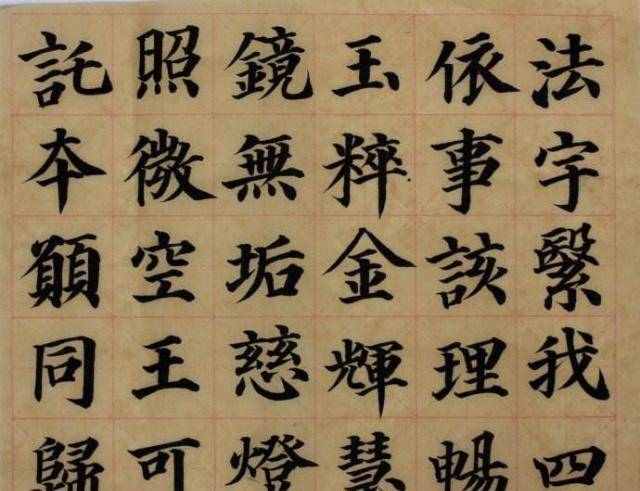 法字繫我四
依事該理暢
玉粹金輝慧
鏡無垢慈燈
照微空王可
託本願同歸